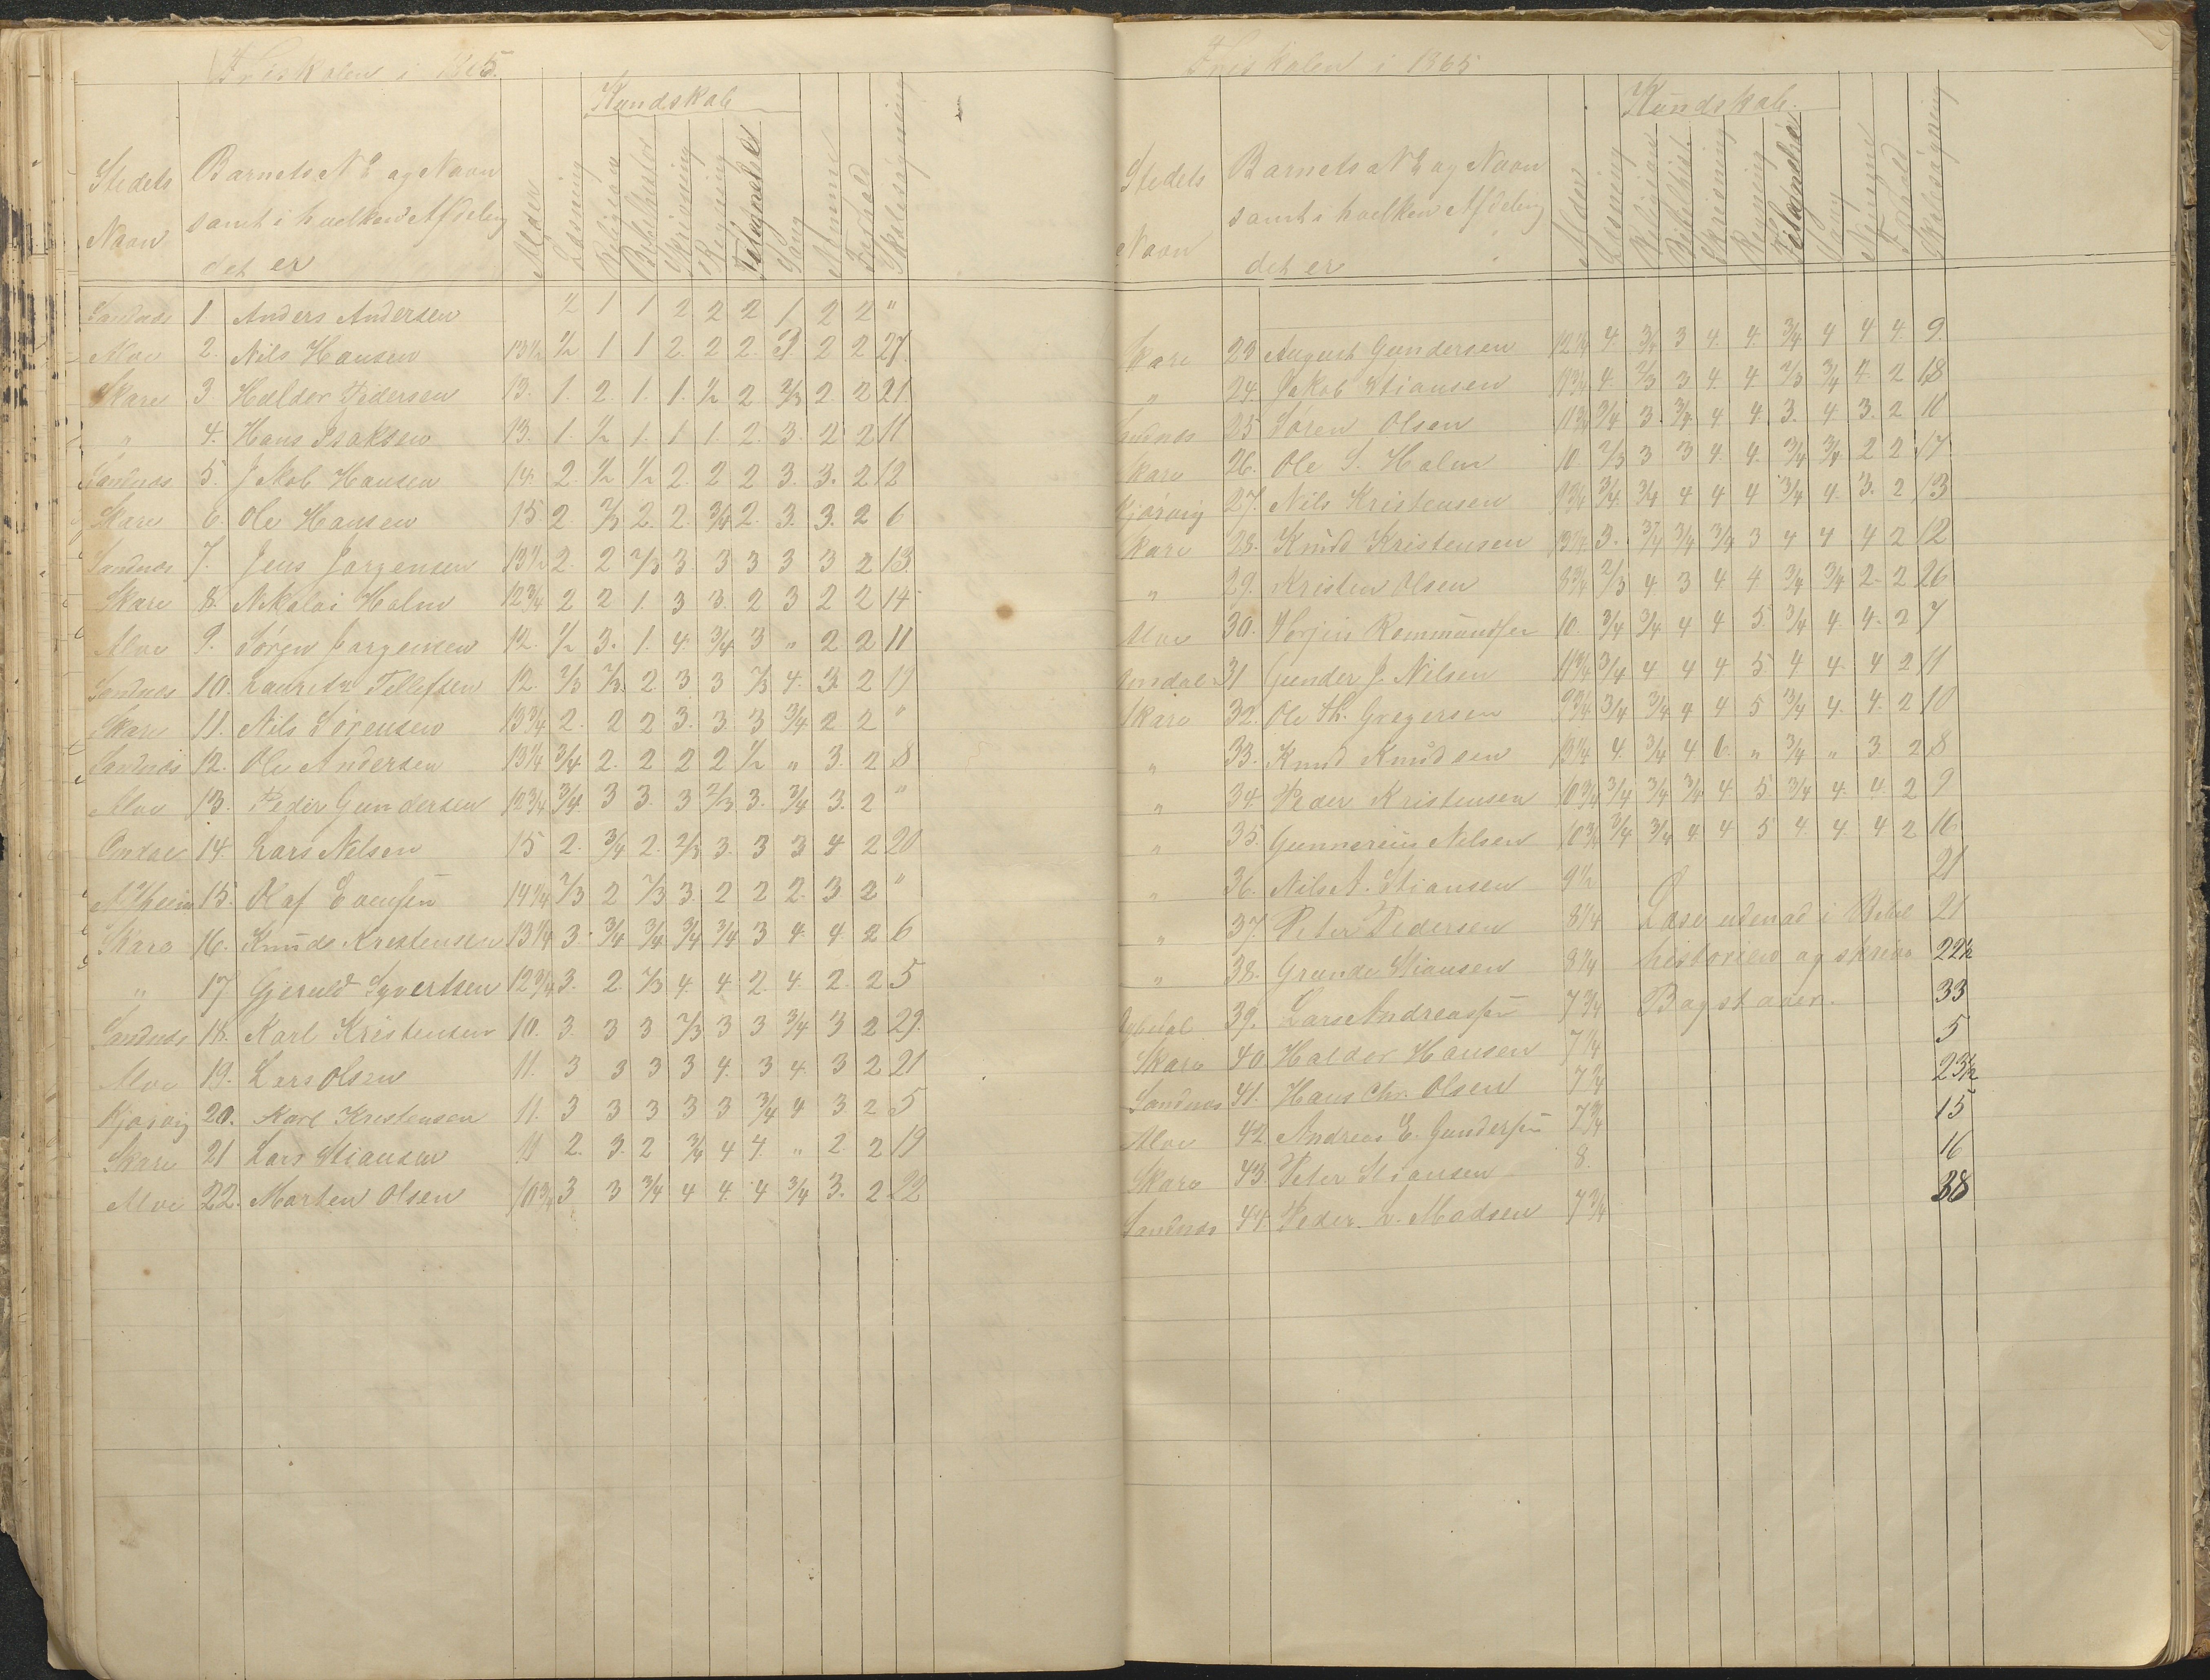 Friskolen i 1865.
Kundskab
Stedets Navn
Barnets No og Navn
samt i hvilken Afdeling
det er
Alder Læsning Religion Bibelhistor Skrivning Regning Fædagnelse Sang Nemme Forhold Skolesøgning
Sandnæs 1. Anders Andersen ½ 1 1 2 2 2 1 2 2 "
Alve 2. Nils Hansen 13½ ½ 1 1 2. 2 2. 2 2 27.
Skare 3. Haldor Pedersen 13. 1. 2. 1. 1. ½ 2 2/3 2. 2 21
" 4. Hans Isaksen 13. 1. ½ 1. 1. 1. 2. 3. 2 2 11
Sandnæs 5. Jakob Hansen 14. 2. ½ ½ 2. 2 2 3. 3. 2 12
Skare 6. Ole Hansen 15. 2 2/3 2. 2. 3/4 2. 3. 3. 2 6
Sandnæs 7. Jens Jørgensen 13½ 2. 2 2/3 3. 3 3 3 3 2 13
Skare 8. Nikolai Holm 12¾ 2 2 1. 3 3. 2 3 2 2 14
Alve 9. Søren Jørgensen 12. ½ 3. 1. 4. 3/4 3 " 2 2 11
Sandnæs 10. Lauritz Tellefsen 12. 2/3 2/3 2 3. 3 2/3 4. 3. 2 19
Skare 11. Nils Sørensen 13¾ 2. 2 2 3. 3. 3 3/4 2 2 "
Sandnæs 12. Ole Andersen 13¼ 3/4 2. 2 2 2 ½ " 3. 2 8
Alve 13. Peder Gundersen 12¾ 3/4 3 3. 3 2/3 3. 3/4 3. 2 "
14 Lars Nilsen 15 2. 3/4 2. 2/3 3. 3 3 4 2 20
15. Olaf 14¼ 2/3 2 2/3 3. 2 2 2. 3. 2 "
Skare 16. Knud Kristensen 13¼ 3. 3/4 3/4 3/4 3/4 3 4. 4. 2 6
" 17 Gjeruld Syvertsen 12¾ 3. 2. 2/3 4. 4. 2 4. 2. 2 5
Sandnæs 18. Karl Kristensen 10. 3. 3 3 2/3 3 3 3/4 3 2 29.
Alve 19. Lars Olsen 11. 3 3 3 3 4. 3 4. 3 2 21
Kjørvig 20. Karl Kristensen 11. 3 3 3 3 3 3/4 4 3 2 5
Skare 21 Lars Stiansen 11 2. 3. 2 3/4 4 4. " 2. 2 19
Alve 22. Morten Olsen 10¾ 3 3 3/4 4 4. 4 3/4 3. 2 22
Friskolen i 1865
Kundskab.
Stedets Navn
Barnets No og Navn
samt i hvilken Afdeling
det er
Alder Læsning Religion Bibelhist. Skrivning Regning Fædagnelse Sang Nemme Forhold Skolesøgning
Skare 23 August Gundersen 12¼ 4. 3/4 3 4. 4. 3/4 4 4 4. 9.
" 24. Jakob Stiansen 4. 2/3 3 4. 4. 2/3 3/4 4. 2 18
Sandnæs 25 Søren Olsen 11¾ 3/4 3. 3/4 4 4. 3. 4 3. 2 10
Skare 26. Ole S. Holm 10 2/3 3 3 4. 4. 3/4 3/4 2 2 17
Kjørvig 27. Nils Kristensen 3/4 3/4 4 4 4 3/4 4. 3. 2 13
Skare 28. Knud Kristensen 3. 3/4 3/4 3/4 3 4 4 4 2 12
" 29. Kristen Olsen 8¾ 2/3 4. 3 4 4 3/4 3/4 2. 2 26
Alve 30. 10. 3/4 3/4 4 4 5. 3/4 4. 4. 2 7
31 Gunder J. Nilsen 11¾ 3/4 4 4 4 5 4 4. 4 2 11
Skare 32. Ole Th. Gregersen 9¾ 3/4 3/4 4 4 5 3/4 4. 4. 2 10
" 33. Knud Knudsen 13¼ 4. 3/4 4 6. " 3/4 " 3. 2 8
" 34. Peder Kristensen 10¾ 3/4 3/4 3/4 4 5 3/4 4. 4. 2 9
" 35. Gunnerius Nilsen 10¾ 3/4 3/4 4. 4 5 4. 4. 4 2 16
" 36. Nils A. Stiansen 9½ 21
" 37. Peter Pedersen 8¼ Læser udenad i Bibel 21
" 38. Grunde Stiansen 8¼ historien og skriver 22½
39. Lars Andreasen 7¾ Bogstaver. 33
Skare 40 Haldor Hansen 7¼ 5
Sandnæs 41. Hans Chr. Olsen 7¾ 23½
Alve 42 Andreas E. Gundersen 7¾ 15
Skare 43. Peter Stiansen 8. 16
Sandnæs 44. Peder L. Madsen 7¾ 38